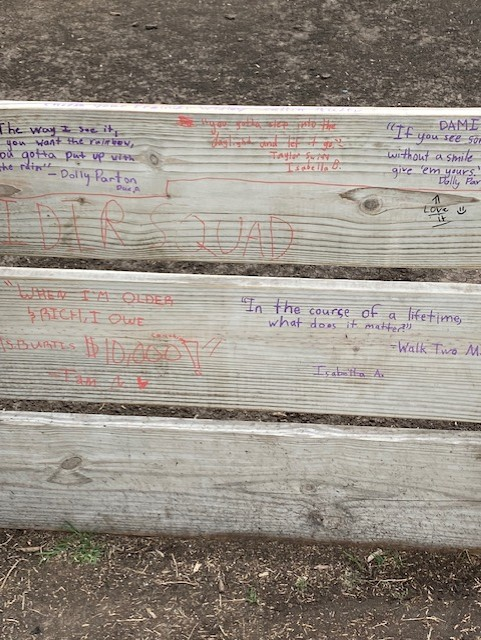 The way I see it,
you want the rainbow,
you gotta put up with
the rain" - Dolly Parton
gotta step into the
daylight and let it go"
Taylor Swift
Isabella B.
DAMI
"If you see so
without a smile
give 'em yours."
Dolly Par
Love
it
IDTR SQUAD
"WHEN I'M OLDER
& RICH, I OWE
$10,000
"In the course of a lifetime,
what does it matter?"
-Walk Two M
Isabella A.